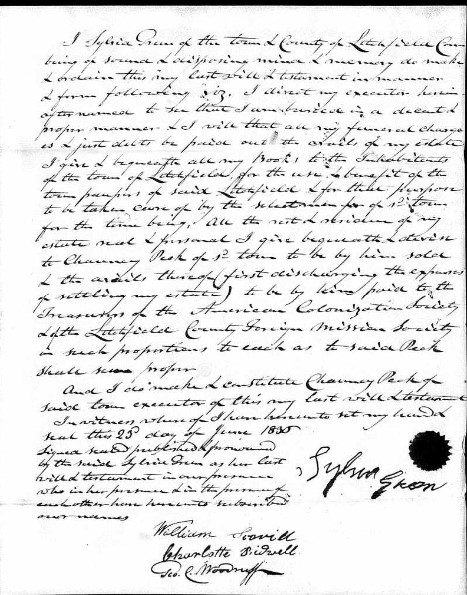 I Sylvia Green of the town & County of Litchfield Conn
being of sound & disposing mind & memory do make
& ordain this my last will & testament in manner
& form following viz. I direct my executor herein
after named to see that I am buried in a decent &
proper manner & I will that all my funeral charg
es & just debts be paid out the avails of my estate
I give & bequeath all my Books to the Inhabitants
of the town of Litchfield for the use & benefit of the
town paupers of said Litchfield & for that purpose
to be taken care of by the selectmen of sd. town
for the time being. All the rest & residue of my
estate real & personal I give bequeath & devise
to Chauncy Peck of sd. town to be by him sold
& the avails thereof (first discharging the expenses
of settling my estate) to be by him paid to the
Treasurers of the American Colonization Society
& of the Litchfield County Foreign Mission Society
in such proportions to each as to said Peck
shall seem proper
And I do make & constitute Chauncy Peck of
said town executor of this my last will & testament
In witness whereof I have hereunto set my hand &
seal this 25th day of June 1835
Signed sealed published & pronounced
by the said Sylvia Green as her last
will & testament in our presence
who in her presence & in the presence of
each other have hereunto subscribed
our names
Sylvia Green
William Scovill
Charlotte Bidwell
Geo. C. Woodruff